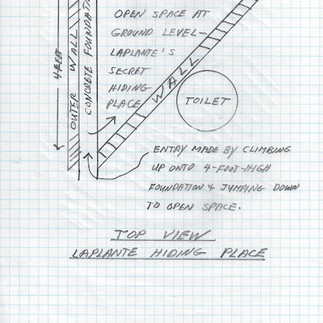 OPEN SPACE AT
GROUND LEVEL—
LAPLANTE'S
SECRET
HIDING
PLACE
4 FEET
OUTER WALL
CONCRETE FOUNDAT
WALL
TOILET
ENTRY MADE BY CLIMBING
UP ONTO 4-FOOT-HIGH
FOUNDATION & JUMPING DOWN
TO OPEN SPACE.
TOP VIEW
LAPLANTE HIDING PLACE